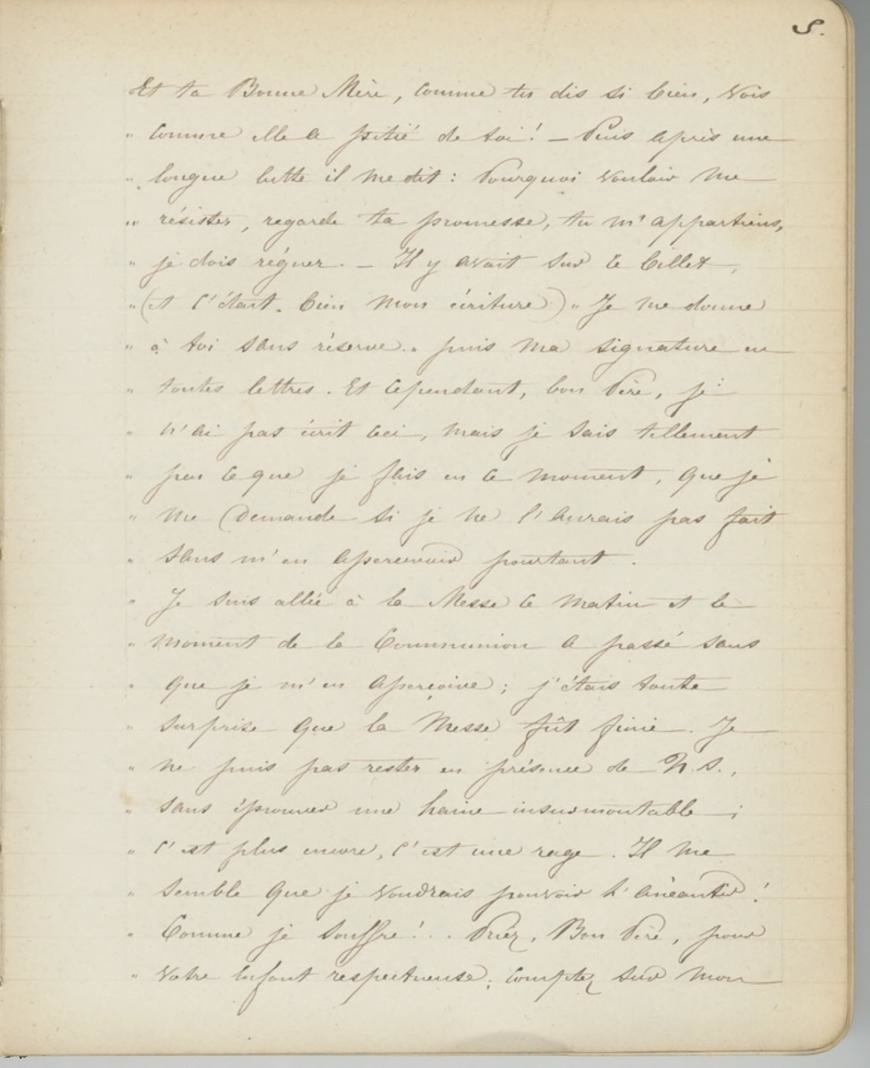 5.
Et ta Bonne Mère, comme tu dis si bien, vois
" comme elle a pitié de toi ! — Puis après une
" longue lutte il me dit : Pourquoi vouloir me
" résister, regarde ta promesse, tu m'appartiens,
" je dois régner. — Il y avait sur le billet,
" (et c'était bien mon écriture) " Je me donne
" à toi sans réserve. " puis ma signature en
" toutes lettres. Et cependant, bon Père, je
" n'ai pas écrit ceci, mais je sais tellement
" peu ce que je fais en ce moment, que je
" me demande si je ne l'aurais pas fait
" sans m'en apercevoir pourtant.
" Je suis allée à la Messe ce matin et le
" moment de la Communion a passé sans
" que je m'en aperçoive ; j'étais toute
" surprise que la Messe fût finie. Je
" ne puis pas rester en présence de N. S.,
" sans éprouver une haine insurmontable ;
" c'est plus encore, c'est une rage. Il me
" semble que je voudrais pouvoir l'anéantir !
" Comme je souffre ! . . Priez, Bon Père, pour
" votre enfant respectueuse ; comptez sur mon